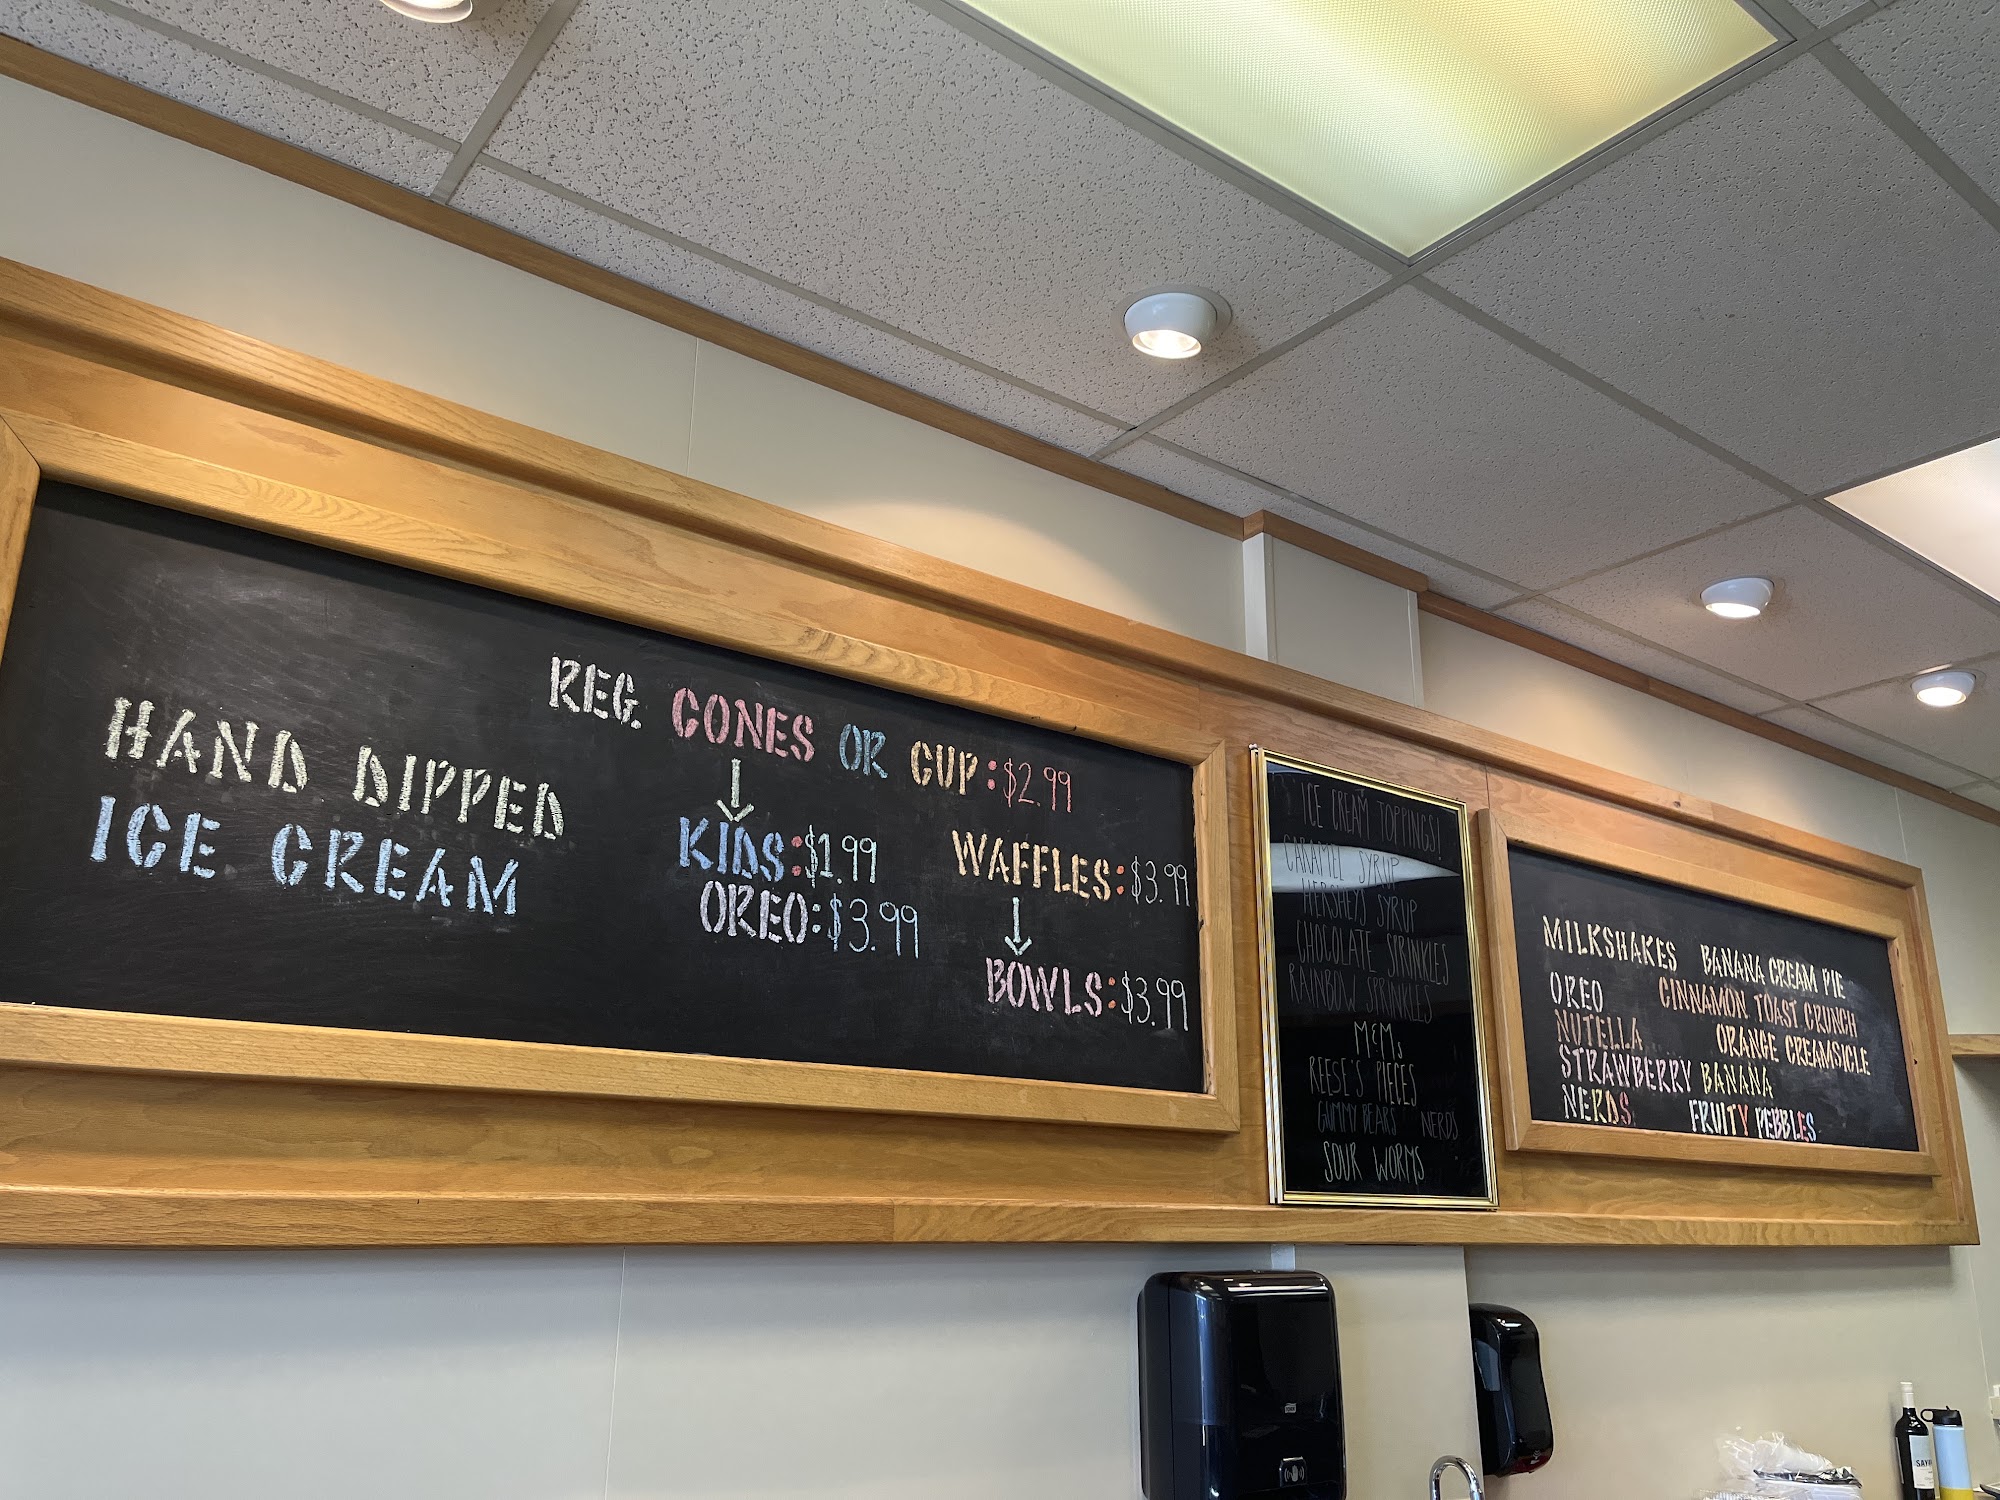 HAND DIPPED
ICE CREAM
REG. CONES OR CUP: $2.99
KIDS: $1.99
OREO: $3.99
WAFFLES: $3.99
BOWLS: $3.99
ICE CREAM TOPPINGS!
CARAMEL SYRUP
HERSHEYS SYRUP
CHOCOLATE SPRINKLES
RAINBOW SPRINKLES
M&Ms
REESE'S PIECES
GUMMY BEARS NERDS
SOUR WORMS
MILKSHAKES BANANA CREAM PIE
OREO CINNAMON TOAST CRUNCH
NUTELLA ORANGE CREAMSICLE
STRAWBERRY BANANA
NERDS FRUITY PEBBLES